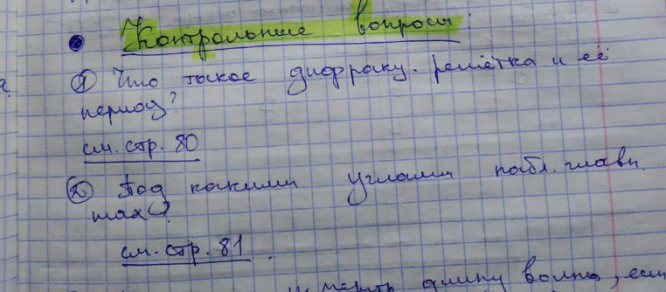 Контрольные вопросы:
① Что такое дифракц. решётка и её
период?
см. стр. 80
② Под какими углами набл. главн.
max?
см. стр. 81.
длину волны, если